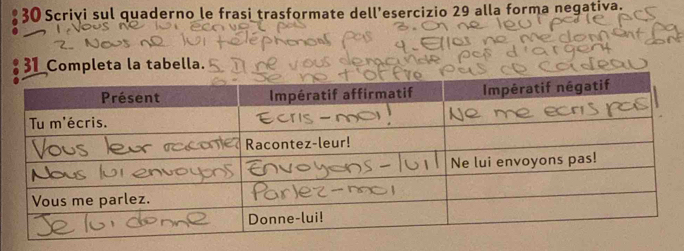 30 Scrivi sul quaderno le frasi trasformate dell'esercizio 29 alla forma negativa.
1. Vous ne lui écrivez pas
3. On ne leur parle pas
2. Nous ne lui téléphonons pas
4. Elles ne me donnent pas
d'argent
31 Completa la tabella.
5. Il ne vous demande pas
6. Je ne t'offre pas ce cadeau
Présent Impératif affirmatif Impératif négatif
Tu m'écris. Ecris-moi! Ne me ecris pas!
Vous leur racontez Racontez-leur!
Nous lui envoyons Envoyons-lui! Ne lui envoyons pas!
Vous me parlez. Parlez-moi
Je lui donne Donne-lui!